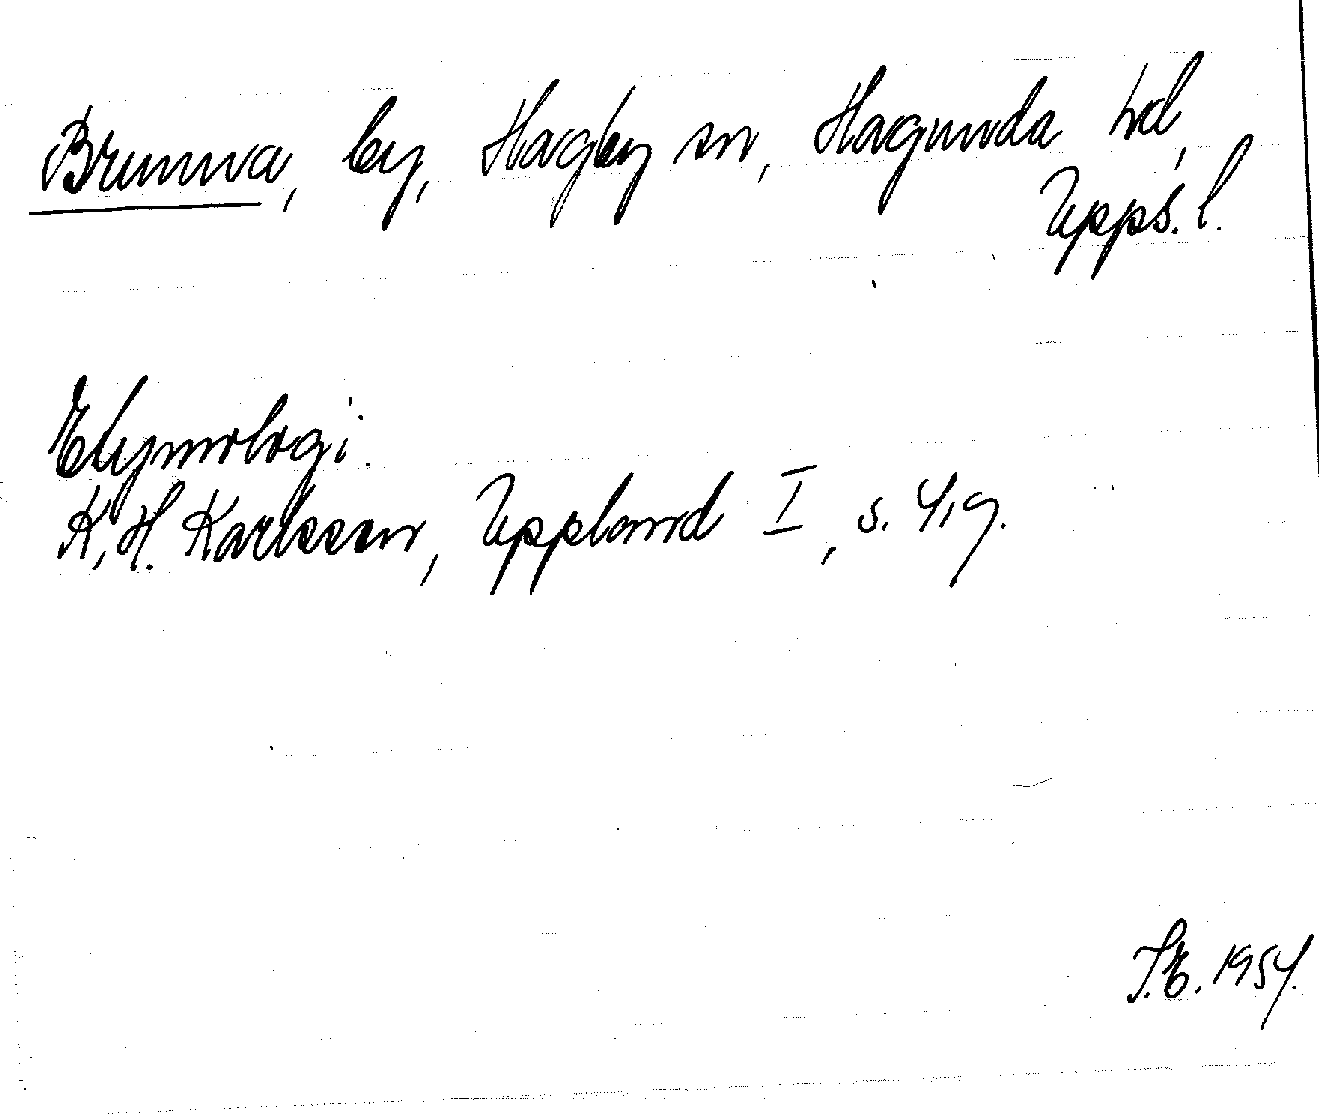 Brunna, by, Hagby sn, Hagunda hd,
Upps. l.
Etymologi.
K. H. Karlsson, Uppland I, s. 419.
S.E. 1954.